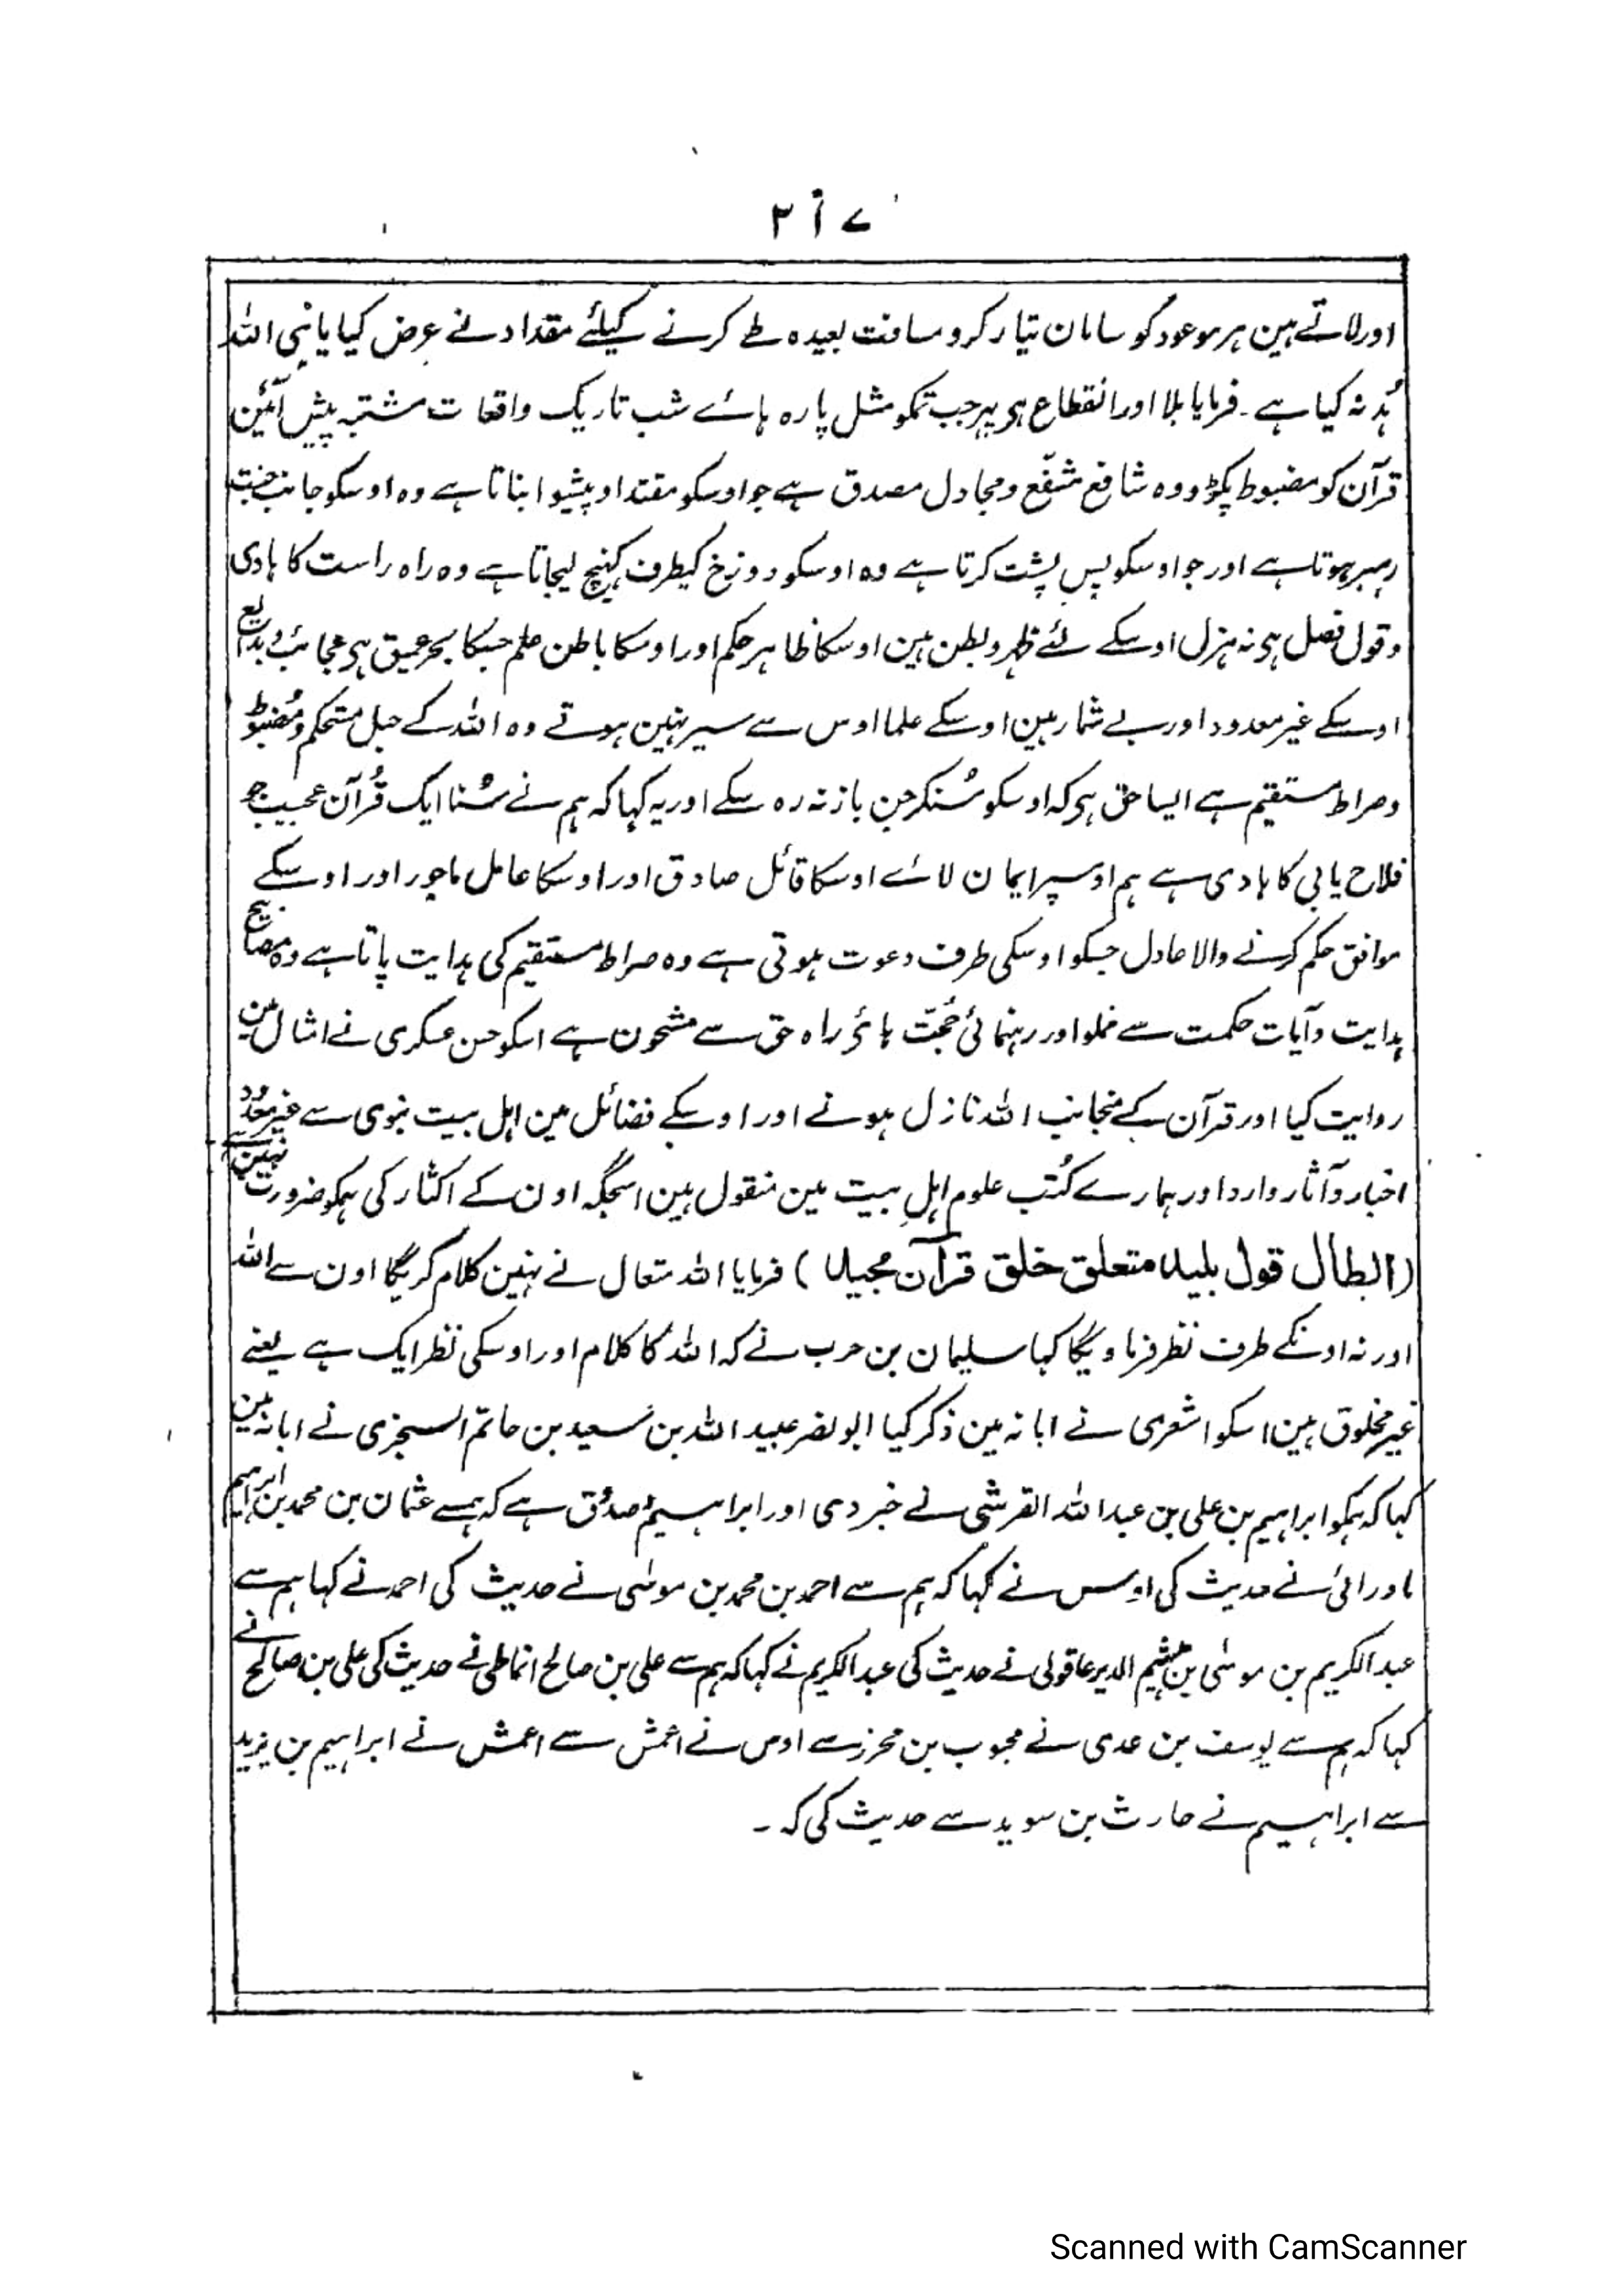 ۲۱۷
اور لاتے ہین ہر موعود کو سامان تیار کرو مسافت بعیدہ طے کرنے کیلئے مقداد نے عرض کیا یا نبی اللہ
ہُدنہ کیا ہے ۔ فرمایا بلا اور انقطاع ہی پہر جب تمکو مثل پارہ ہائے شب تاریک واقعات مشتبہ پیش آئین
قرآن کو مضبوط پکڑو وہ شافع مشفّع و مجادل مصدق ہے جو اوسکو مقتدا و پیشوا بناتا ہے وہ اوسکو جانب جنت
رہبر ہوتا ہے اور جو اوسکو پس پشت کرتا ہے وہ اوسکو دوزخ کیطرف کہنچ لیجاتا ہے وہ راہ راست کا ہادی
و قول فصل ہی نہ ہزل اوسکے لئے ظہر و بطن ہین اوسکا ظاہر حکم اور اوسکا باطن علم جسکا بحر عمیق ہی عجائب و بدائع
اوسکے غیر معدود اور بے شمار ہین اوسکے علما اوس سے سیر نہین ہوتے وہ اللہ کے حبل مستحکم و مضبوط
و صراط مستقیم ہے ایسا حق ہی کہ اوسکو سُنکر جن باز نہ رہ سکے اور یہ کہا کہ ہم نے سُنا ایک قُرآن عجیب جو
فلاح یابی کا ہادی ہے ہم اوسپر ایمان لائے اوسکا قائل صادق اور اوسکا عامل ماجور اور اوسکے
موافق حکم کرنے والا عادل جسکو اوسکی طرف دعوت ہوتی ہے وہ صراط مستقیم کی ہدایت پاتا ہے وہ مصابیح
ہدایت و آیات حکمت سے مملو اور رہنمائی حُجّت ہائے راہ حق سے مشحون ہے اسکو حسن عسکری نے امثال مین
روایت کیا اور قرآن کے منجانب اللہ نازل ہونے اور اوسکے فضائل مین اہل بیت نبوی سے غیر معدود
اخبار و آثار وارد اور ہمارے کُتب علوم اہلِ بیت مین منقول ہین اسجگہ اون کے اکثار کی ہمکو ضرورت نہین ہے
(ابطال قول بلید متعلق خلق قرآن مجید) فرمایا اللہ متعال نے نہین کلام کریگا اون سے اللہ
اور نہ اونکے طرف نظر فرماویگا کہا سلیمان بن حرب نے کہ اللہ کا کلام اور اوسکی نظر ایک ہے یعنے
غیر مخلوق ہین اسکو اشعری نے ابانہ مین ذکر کیا ابو نصر عبید اللہ بن سعید بن حاتم السجزی نے ابانہ مین
کہا کہ ہمکو ابراہیم بن علی بن عبد اللہ القرشی نے خبر دی اور ابراہیم صدُوق ہے کہ ہمسے عثمان بن محمد بن ابراہیم
مادرائی نے حدیث کی اوس نے کہا کہ ہم سے احمد بن محمد بن موسٰی نے حدیث کی احمد نے کہا ہم سے
عبد الکریم بن موسٰی بن ہیثم الدیر عاقولی نے حدیث کی عبد الکریم نے کہا کہ ہم سے علی بن صالح انماطی نے حدیث کی علی بن صالح نے
کہا کہ ہم سے یوسف بن عدی نے محبوب بن محرز سے اوس نے اعمش سے اعمش نے ابراہیم بن یزید
سے ابراہیم نے حارث بن سوید سے حدیث کی کہ ۔
Scanned with CamScanner